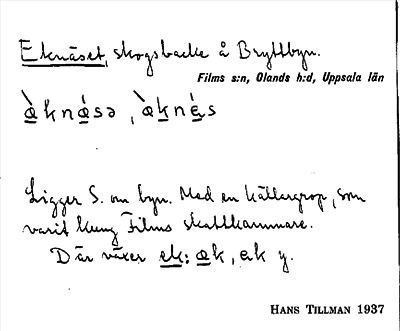 Eknäset, skogsbacke å Bryttbyn.
Films s:n, Olands h:d, Uppsala län
æ̀knǽsə, æ̀knǽs
Ligger S. om byn. Med en källargrop, som
varit kung Films skattkammare.
Där växer ek: æk, ek y.
HANS TILLMAN 1937